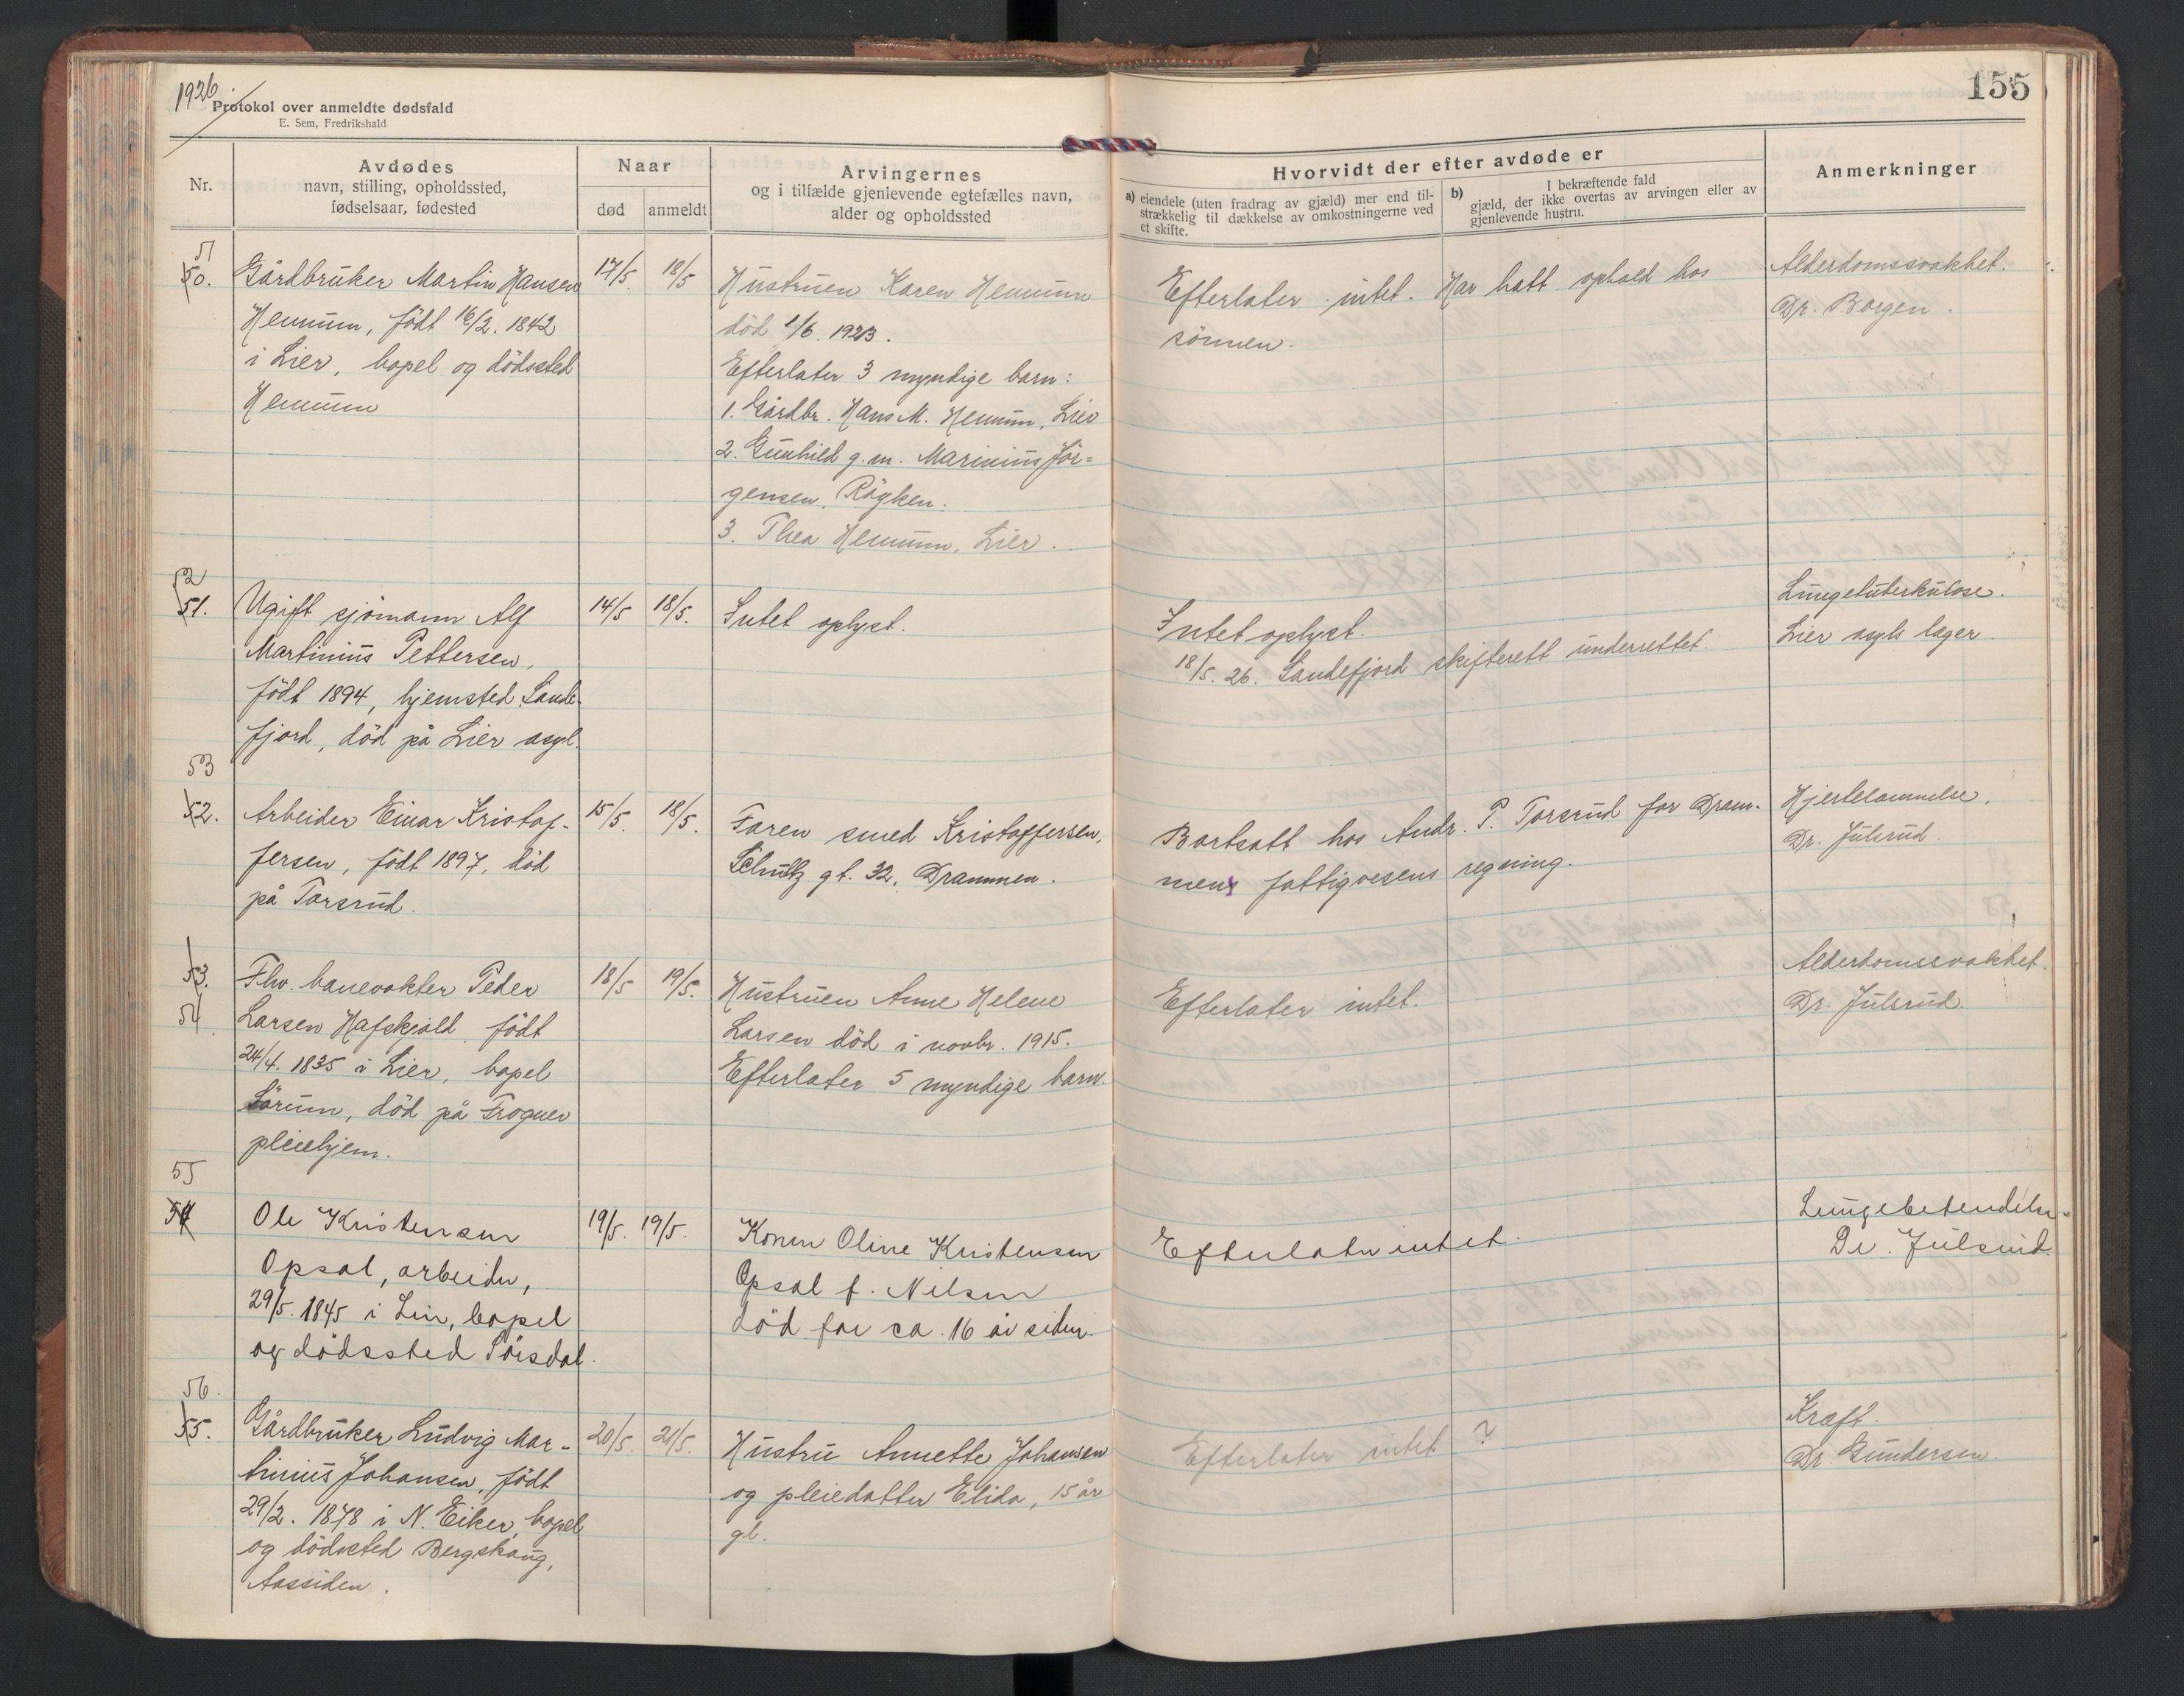 1926
Protokol over anmeldte dødsfald
E. Sem, Fredrikshald
155
Nr.
Avdødes
navn, stilling, opholdssted,
fødselsaar, fødested
Naar
død
anmeldt
Arvingernes
og i tilfælde gjenlevende egtefælles navn,
alder og opholdssted
Hvorvidt der efter avdøde er
a) eiendele (uten fradrag av gjæld) mer end til-
strækkelig til dækkelse av omkostningerne ved
et skifte.
b) I bekræftende fald
gjæld, der ikke overtas av arvingen eller av
gjenlevende hustru.
Anmerkninger
51
50.
Gårdbruker Martin Hansen
Hennum, født 16/2. 1842
i Lier, bopel og dödssted
Hennum
17/5. 18/5
Hustruen Karen Hennum
død 1/6. 1923.
Efterlater 3 myndige barn:
1. Gårdbr. Hans M. Hennum, Lier
2. Gunhild g. m. Marinius Jör=
gensen, Röyken.
3. Thea Hennum, Lier.
Efterlater intet. Har hatt ophold hos
sönnen.
Alderdomssvakhet.
Dr. Borgen.
52
51.
Ugift sjömann Alf
Martinius Pettersen,
födt 1894, hjemsted Sande-
fjord, död på Lier asyl.
14/5 18/5.
Intet oplyst.
Intet oplyst.
18/5. 26. Sandefjord skifterett underrettet.
Lungetuberkulose.
Lier asyls læger.
53
52.
Arbeider Einar Kristof-
fersen, födt 1897, död
på Torsrud.
15/5. 18/5.
Faren smed Kristoffersen,
Schultz gt. 32, Drammen.
Bortsatt hos Andr. P. Torsrud for Dram-
mens fattigvesens regning.
Hjertelammelse.
Dr. Julsrud.
53.
54
Fhv. banevokter Peder
Larsen Hafskjold, födt
24/4. 1835 i Lier, bopel
Sörum, död på Frogner
pleiehjem.
18/5 19/5.
Hustruen Anne Helene
Larsen död i novbr. 1915.
Efterlater 5 myndige barn.
Efterlater intet.
Alderdomssvakhet.
Dr. Julsrud.
55
54
Ole Kristensen
Opsal, arbeider,
29/5. 1845 i Lier, bopel
og dödssted Sörsdal.
19/5. 19/5.
Konen Oline Kristensen
Opsal f. Nilsen
död for ca. 16 år siden.
Efterlater intet.
Lungebetendelse.
Dr. Julsrud.
56.
55.
Gårdbruker Ludvig Mar-
tinius Johansen, födt
29/2. 1878 i N. Eiker, bopel
og dödssted Bergskaug,
Aassiden.
20/5. 21/5.
Hustru Annette Johansen
og pleiedatter Elida, 15 år
gl.
Efterlater intet ?
Kræft.
Dr. Gundersen.